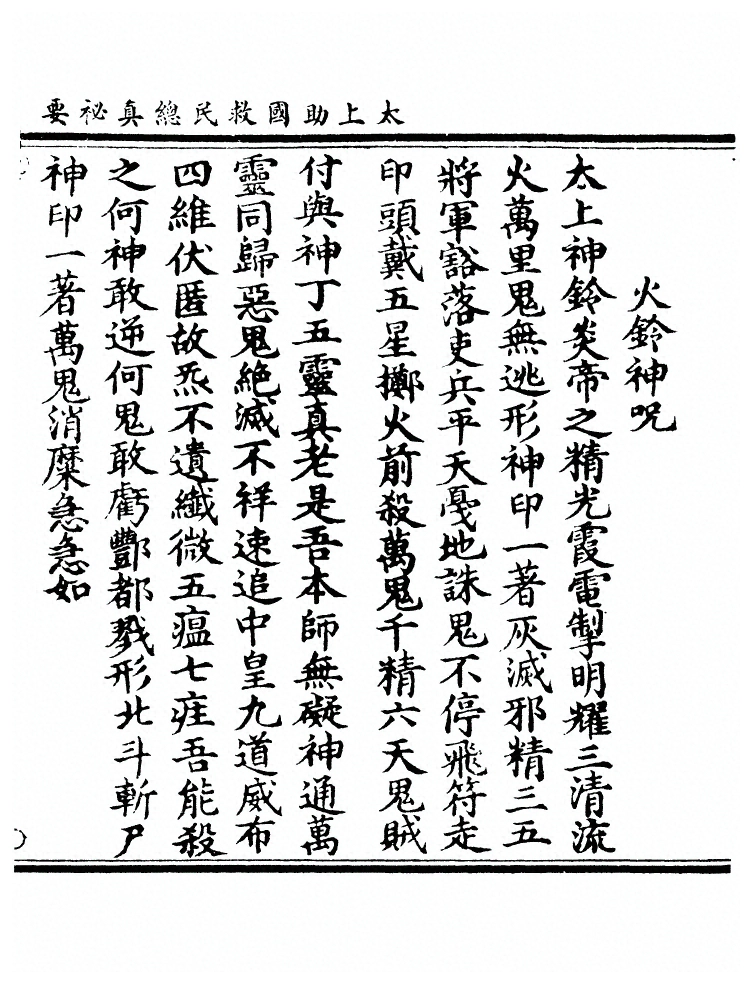 太上助國救民總真祕要
火鈴神呪
太上神鈴炎帝之精光霞電掣明耀三清流
火萬里鬼無逃形神印一著灰滅邪精三五
將軍豁落吏兵平天戛地誅鬼不停飛符走
印頭戴五星擲火前殺萬鬼千精六天鬼賊
付與神丁五靈真老是吾本師無礙神通萬
靈同歸惡鬼絶滅不祥速追中皇九道威布
四維伏匿故炁不遺纖微五瘟七疰吾能殺
之何神敢逆何鬼敢虧酆都戮形北斗斬尸
神印一著萬鬼消糜急急如